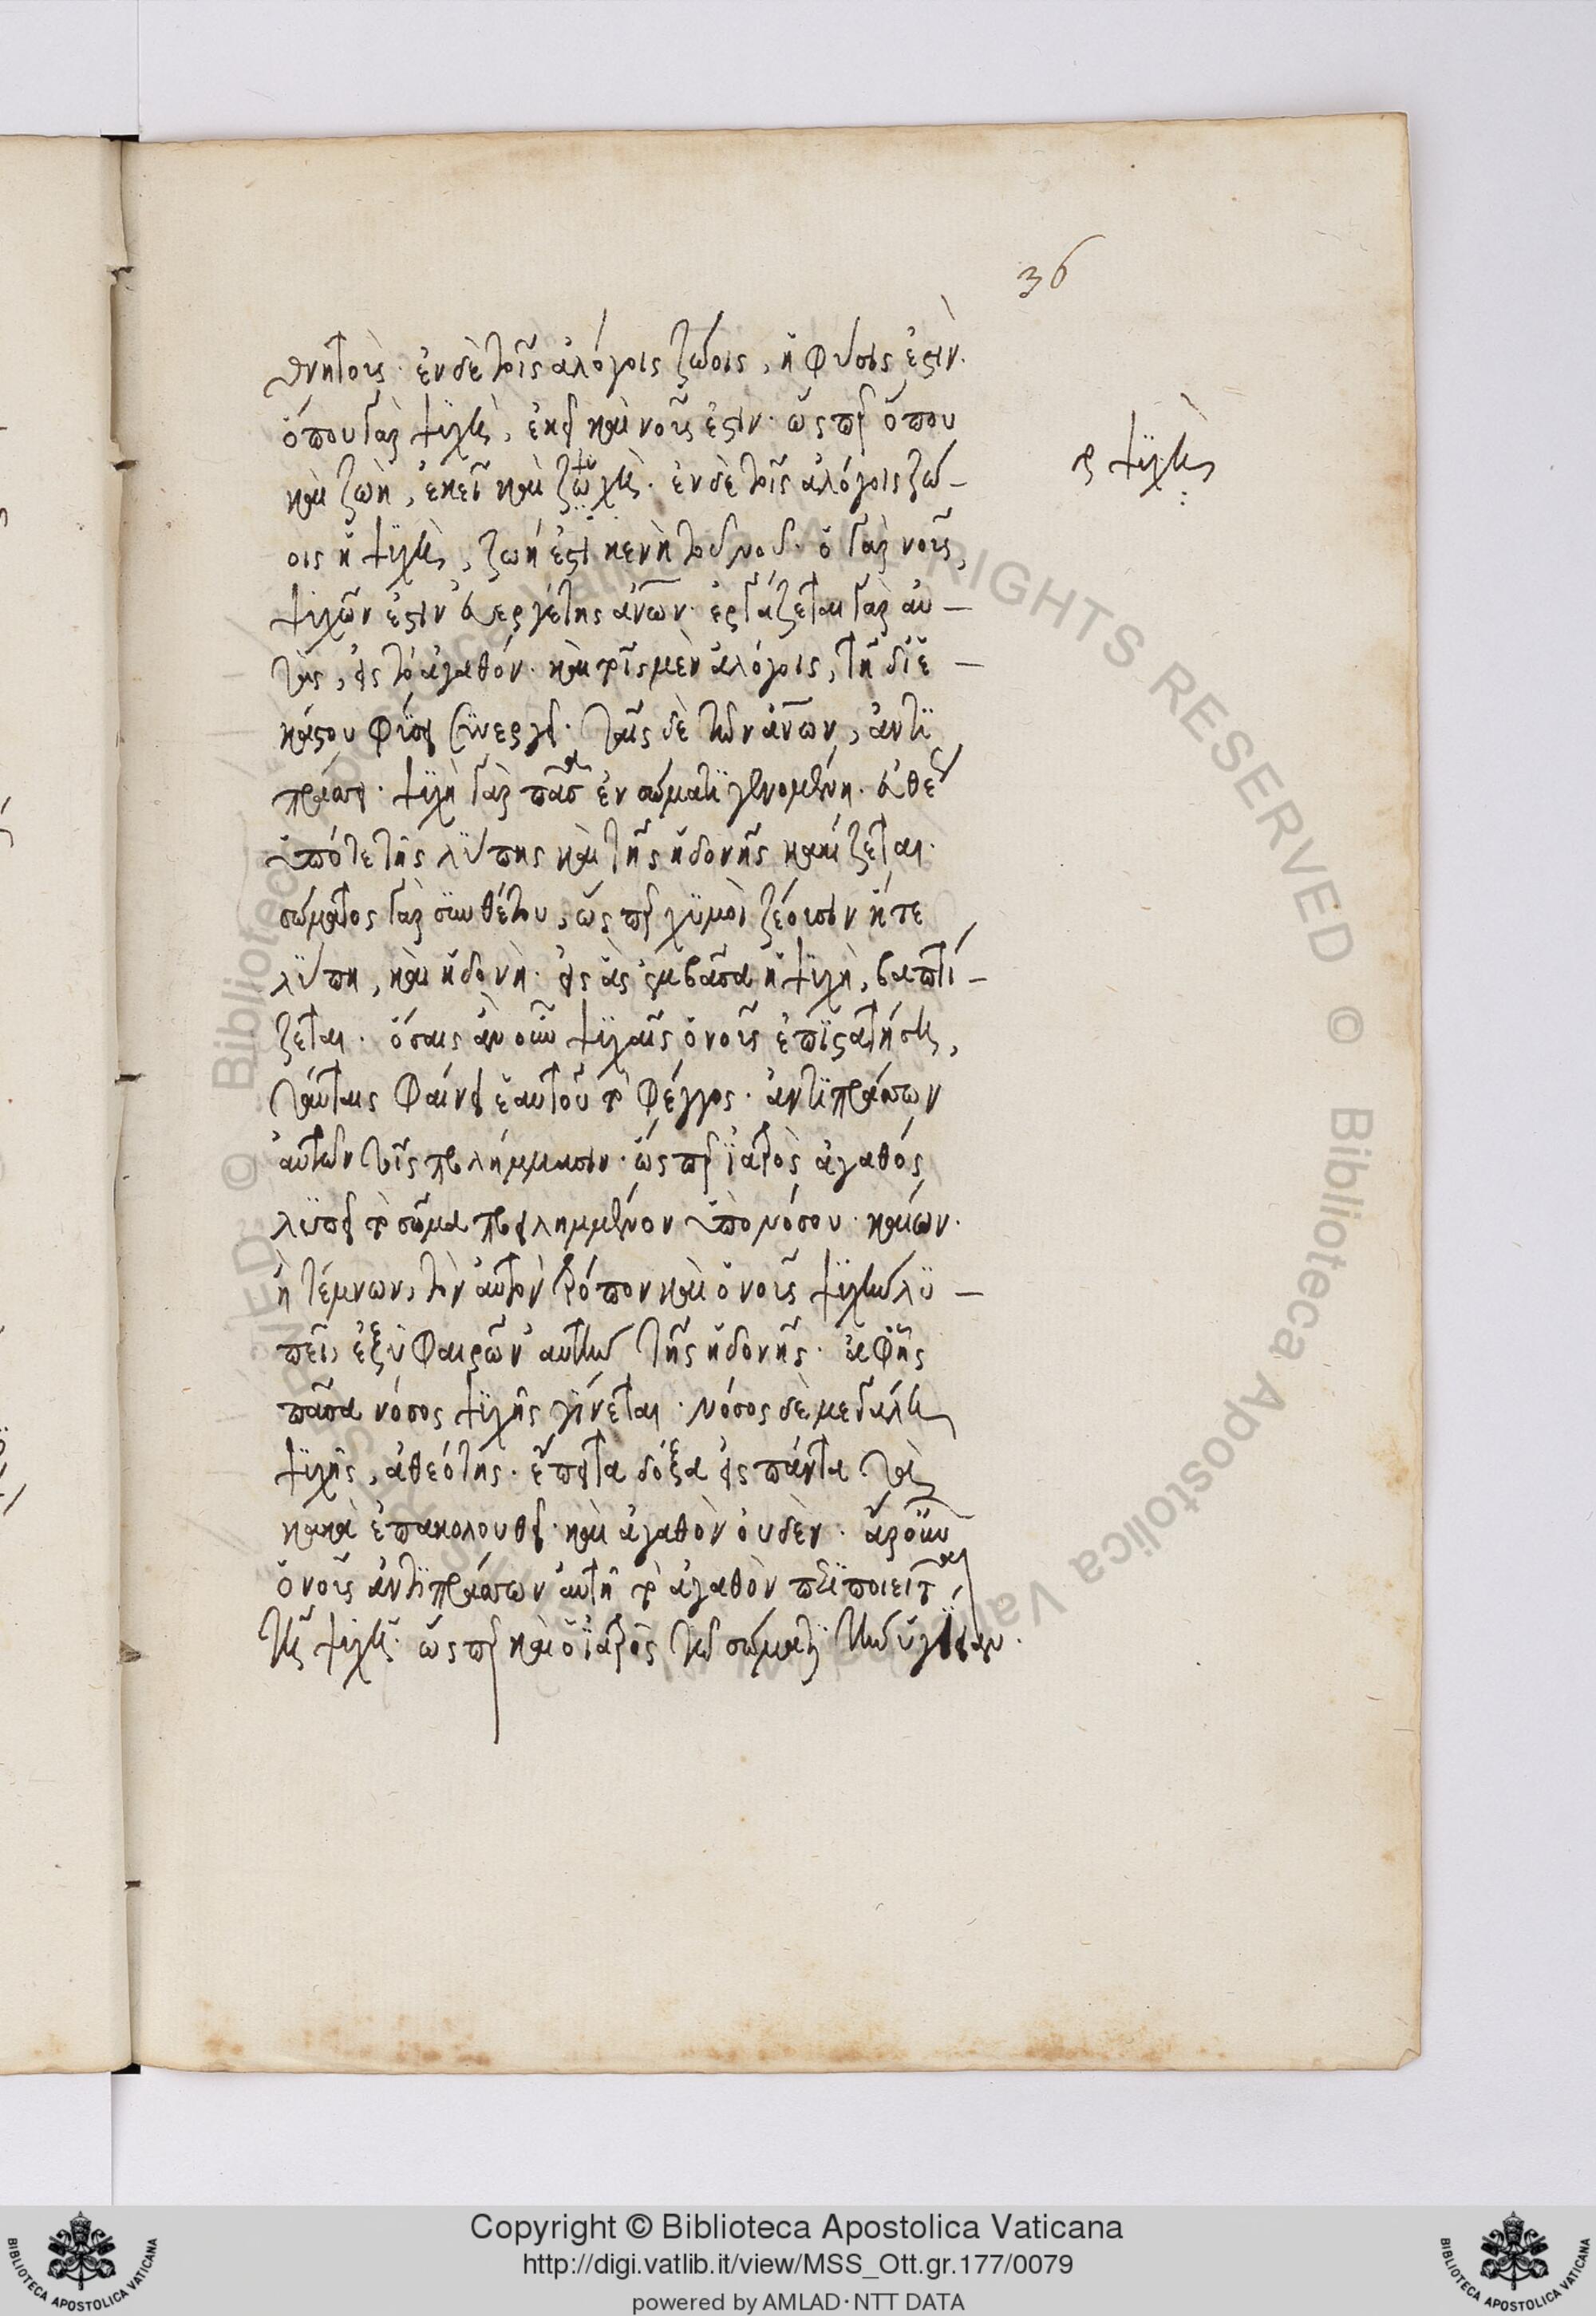 36
θνητούς. ἐν δὲ τοῖς ἀλόγοις ζώοις, ἡ φύσις ἐστὶν.
ὅπου γὰρ ψυχὴ, ἐκεῖ καὶ νοῦς ἐστὶν. ὥσπερ ὅπου
καὶ ζωὴ, ἐκεῖ καὶ ψυχὴ. ἐν δὲ τοῖς ἀλόγοις ζώ-
οις ἡ ψυχὴ, ζωή ἐστι κενὴ τοῦ νοῦ. ὁ γὰρ νοῦς,
ψυχῶν ἐστὶν εὐεργέτης ἀνων. ἐργάζεται γὰρ αὐ-
τὰς, εἰς τὸ ἀγαθόν. καὶ τοῖς μὲν ἀλόγοις, τῇ δι' ἑ-
κάστου φύσει συνεργεῖ. ταῖς δὲ τῶν ἀνων, ἀντι
πράσσει. ψυχὴ γὰρ πᾶσα ἐν σώματι γενομένη. εὐθέως
ὑπό τε τῆς λύπης καὶ τῆς ἡδονῆς κακίζεται.
σώματος γὰρ συνθέτου, ὥσπερ χυμοὶ ζέουσιν ἥ τε
λύπη, καὶ ἡδονὴ. εἰς ἃς ἐμβᾶσα ἡ ψυχὴ, βαπτί-
ζεται. ὅσαις ἂν οὖν ψυχαῖς ὁ νοῦς ἐπιστατήσῃ,
ταύταις φαίνει ἑαυτοῦ τὸ φέγγος. ἀντιπράσσων
αὐτῶν τοῖς προλήμμασιν. ὥσπερ ἰατρὸς ἀγαθός
λυπεῖ τὸ σῶμα προειλημμένον ὑπὸ νόσου. καίων.
ἢ τέμνων, τὸν αὐτὸν τρόπον καὶ ὁ νοῦς ψυχὴν λυ-
πεῖ, ἐξυφαιρῶν αὐτὴν τῆς ἡδονῆς. ἀφ' ἧς
πᾶσα νόσος ψυχῆς γίνεται. νόσος δὲ μεγάλη
ψυχῆς, ἀθεότης. ἔπειτα δόξα εἰς πάντα τὰ
κακὰ ἐπακολουθεῖ. καὶ ἀγαθὸν οὐδὲν. ἆρ' οὖν
ὁ νοῦς ἀντιπράσσων αὐτῇ τὸ ἀγαθὸν περιποιεῖται
τῇ ψυχῇ. ὥσπερ καὶ ὁ ἰατρὸς τῷ σώματι τὴν ὑγείαν.
ψυχὴ
Copyright © Biblioteca Apostolica Vaticana
http://digi.vatlib.it/view/MSS_Ott.gr.177/0079
powered by AMLAD·NTT DATA